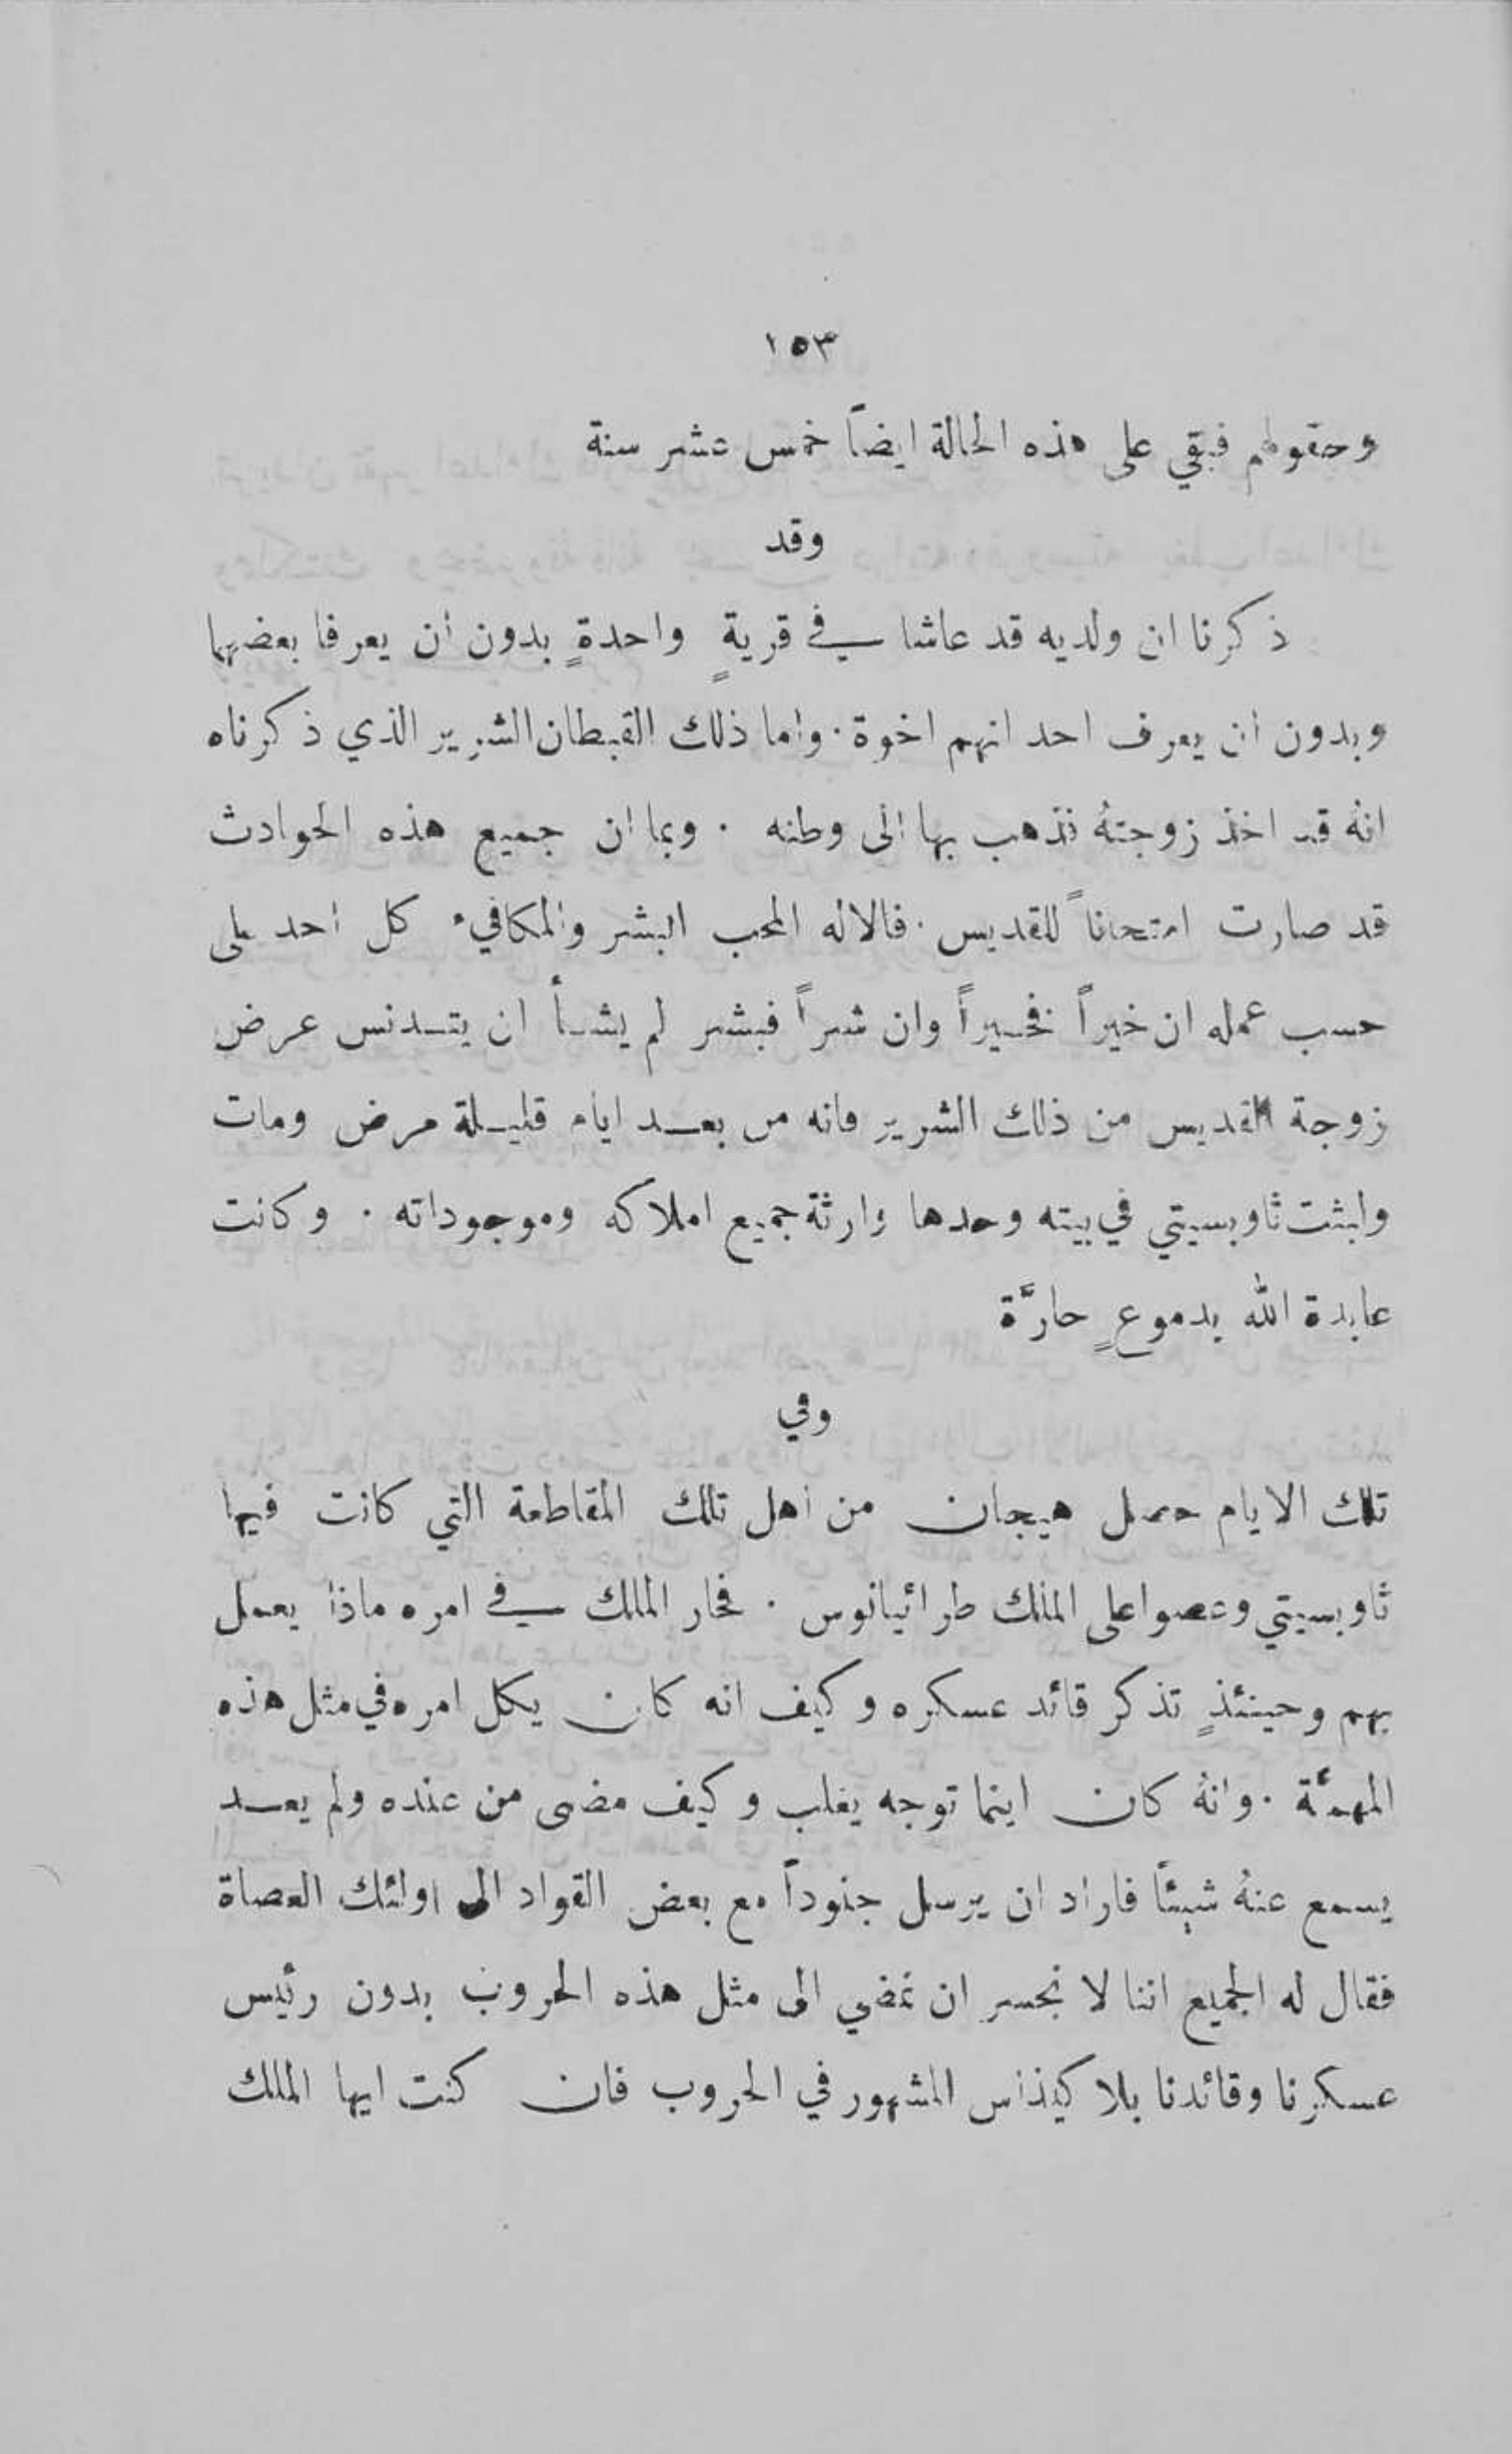 ١٥٣
وحقولهم فبقي على هذه الحالة ايضاً خمس عشر سنة
وقد
ذكرنا ان ولديه قد عاشا في قريةٍ واحدةٍ بدون أن يعرفا بعضهما
وبدون أن يعرف احد انهم اخوة. واما ذلك القبطان الشرير الذي ذكرناه
انه قد اخذ زوجتهُ فذهب بها الى وطنه . وبما ان جميع هذه الحوادث
قد صارت امتحاناً للقديس. فالاله المحب البشر والمكافيء كل احد على
حسب عمله ان خيراً فخيراً وان شراً فبشر لم يشأ ان يتدنس عرض
زوجة القديس من ذلك الشرير فانه من بعد ايام قليلة مرض ومات
ولبثت ثاوبسيتي في بيته وحدها وارثة جميع املاكه وموجوداته . وكانت
عابدة الله بدموعٍ حارَّة
وفي
تلك الايام حصل هيجان من اهل تلك المقاطعة التي كانت فيها
ثاوبسيتي وعصوا على الملك طرائيانوس . فحار الملك في امره ماذا يعمل
بهم وحينئذٍ تذكر قائد عسكره وكيف انه كان يكل امره في مثل هذه
المهمَّة . وانهُ كان اينما توجه يغلب وكيف مضى من عنده ولم يعد
يسمع عنهُ شيئاً فاراد ان يرسل جنوداً مع بعض القواد الى اولئك العصاة
فقال له الجميع اننا لا نجسر ان نمضي الى مثل هذه الحروب بدون رئيس
عسكرنا وقائدنا بلاكيذاس المشهور في الحروب فان كنت ايها الملك